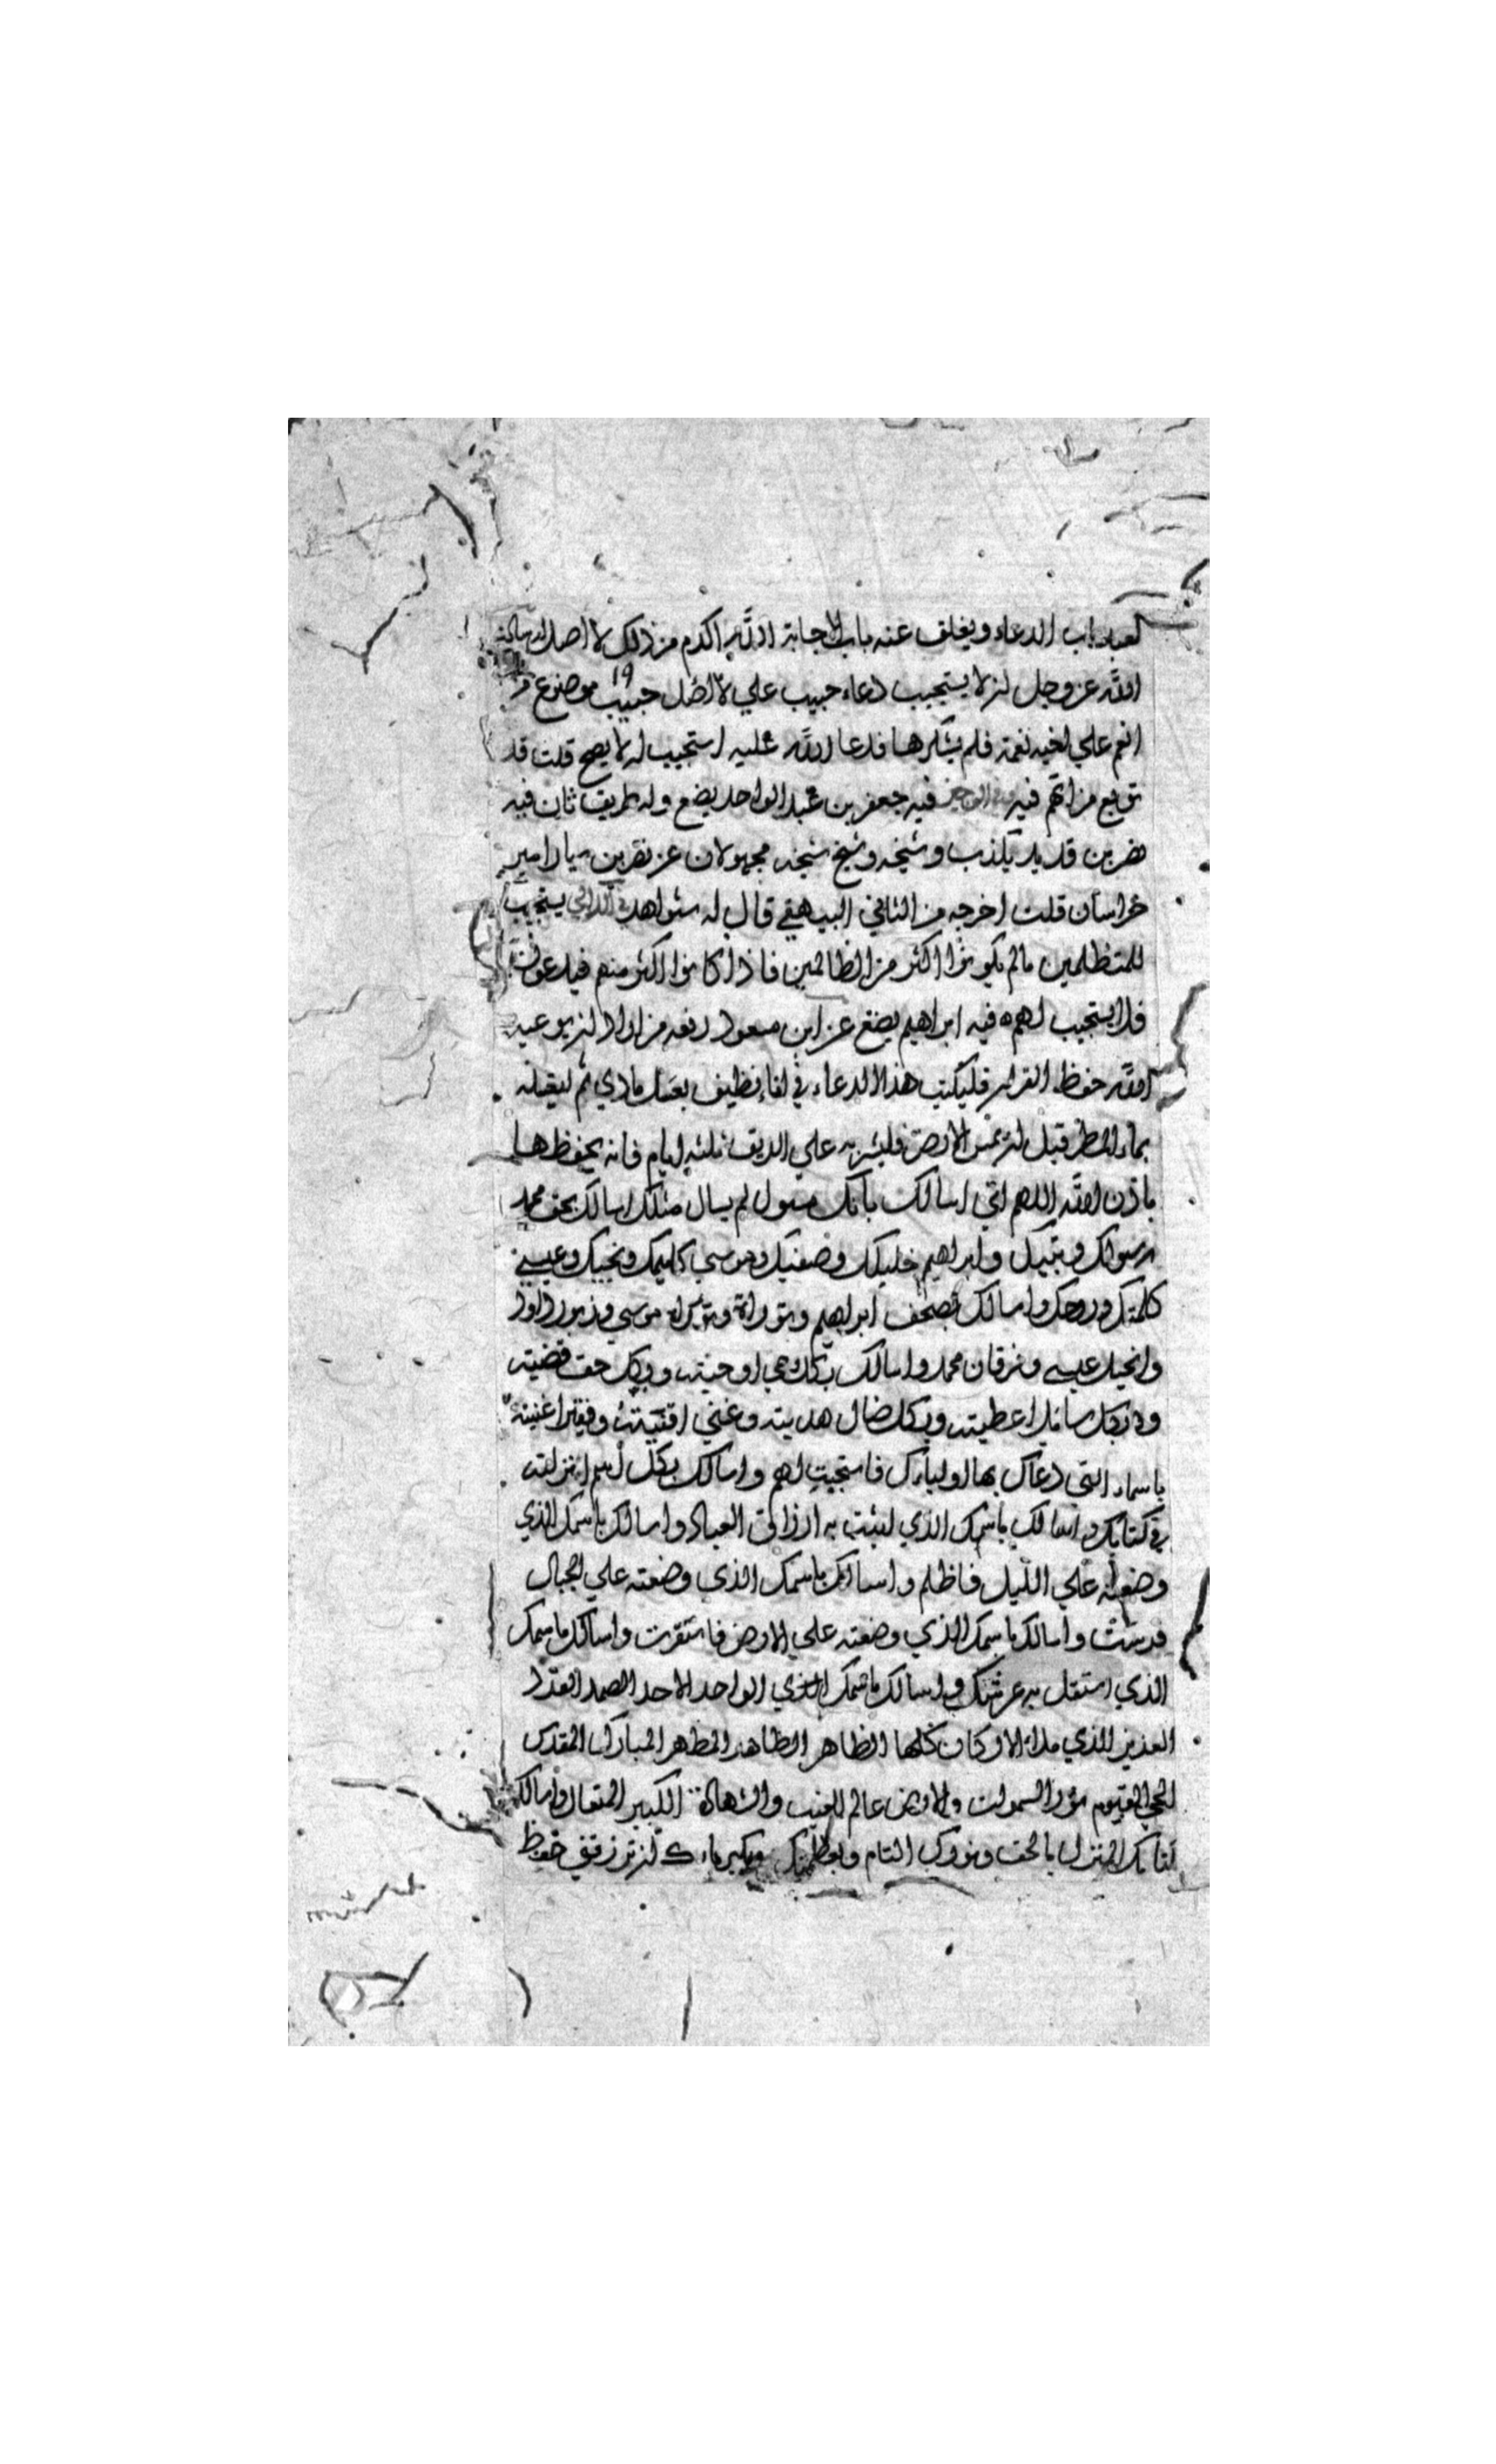 لعبد باب الدعاء ويغلق عنه باب الاجابة الله اكرم من ذلك لا اصل له سالت
الله عز وجل ان لا يستجيب دعاء حبيب علي لا اصل حبيب موضوع من
انعم علي اخيه نعمة فلم يشكرها فدعا الله عليه استجيب له لا يصح قلت قد
توبع من اتهم فيه وفي الوجيز فيه جعفر بن عبد الواحد يضع وله طريق ثان فيه
نصر بن قديد يكذب وشيخه وشيخ شيخه مجهولان عن نصر بن سيار امير
خراسان قلت اخرجه من الثاني البيهقي قال له شواهد في اللآلي يستجيب
للمتظلمين مالم يكونوا اكثر من الظالمين فاذا كانوا اكثر منهم فيدعون
فلا يستجيب لهم ه فيه ابراهيم يضع عن ابن مسعود رفعه من اراد ان يوعيه
الله حفظ القران فليكتب هذا الدعاء في اناء نظيف بعسل ماذي ثم ليغسله
بماء المطر قبل ان يمس الارض فليشربه علي الريق ثلثه ايام فانه يحفظها
باذن الله اللهم اني اسالك بانك مسول لم يسال مثلك اسالك بحق محمد
رسولك ونبيك وابراهيم خليلك وصفيك وموسي كليمك ونجيك وعيسي
كلمتك وروحك واسالك بصحف ابراهيم وبتوراة موسي وزبور داود
وانجيل عيسي وفرقان محمد واسالك بكل وحي اوحيته وبكل حق قضيته
وبكل سائل اعطيته وبكل ضال هديته وغني اقنيته وفقير اغنيته
باسماء التي دعاك بها اولياءك فاستجيت لهم واسالك بكل اسم انزلته
في كتابك واسالك باسمك الذي اثبت به ارزاق العباد واسالك باسمك الذي
وضعته علي الليل فاظلم واسالك باسمك الذي وضعته علي الجبال
فرست واسالك باسمك الذي وضعته علي الارض فاستقرت واسالك باسمك
الذي استقل به عرشك واسالك باسمك الذي الواحد الاحد الصمد الفرد
العزيز الذي ملا الاركان كلها الظاهر الطاهر المطهر المبارك المقدس
الحي القيوم نور السموات والارض عالم الغيب والشهادة الكبير المتعال واسالك
كتابك المنزل بالحق ونورك التام وبعظمتك وبكبرياءك ان ترزقني حفظ